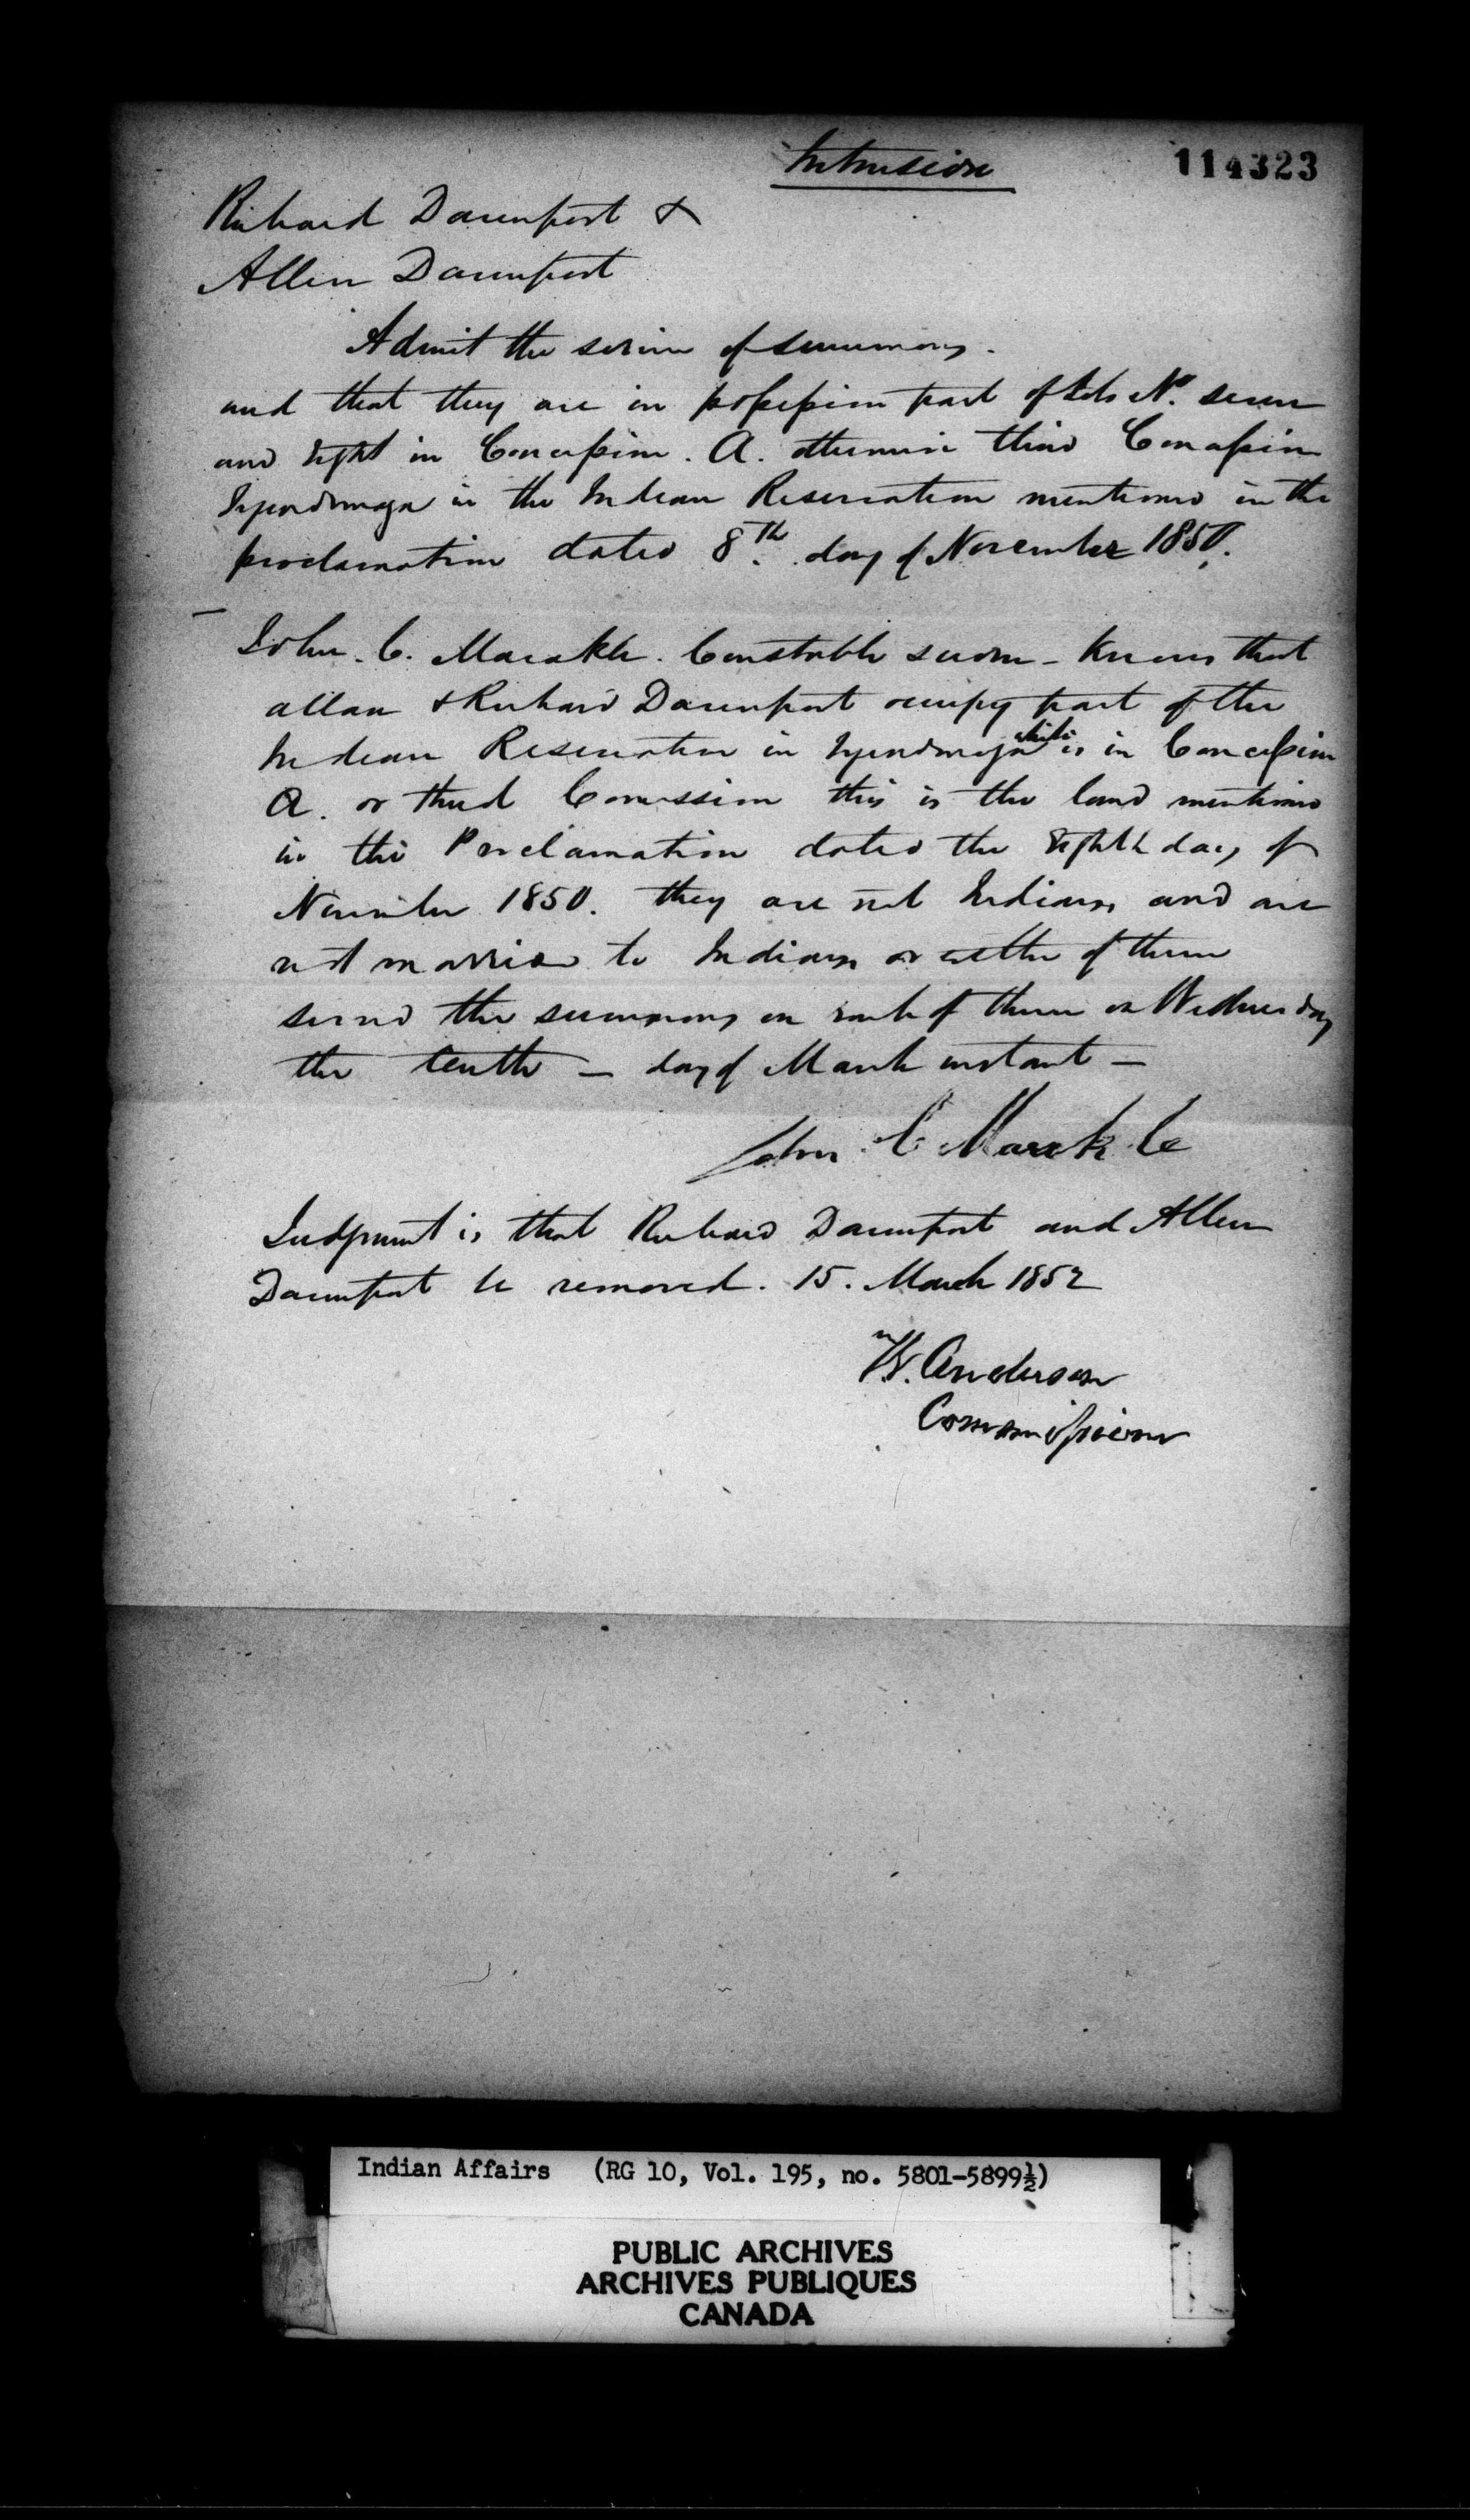 Intrusion
114323
Richard Davenport &
Allen Davenport
Admit the service of summons.
and that they are in possession part of Lots No. seven
and Eight in Concession. A. otherwise third Concession
Tyendinaga in the Indian Reservation mentioned in the
proclamation dated 8th. day of November 1850.
John. C. Marakle. Constable sworn - Knows that
allan & Richard Davenport occupy part of the
Indian Reservation in Tyendinaga which is in Concession
A. or third Concession this is the land mentioned
in the Proclamation dated the Eighth day of
November 1850. they are not Indians and are
not married to Indians or either of them
served the summons on each of them on Wednesday
the tenth — day of March instant —
John C Marakle
Judgment is that Richard Davenport and Allen
Davenport be removed. 15. March 1852
W. Anderson
Commissioner
Indian Affairs (RG 10, Vol. 195, no. 5801-5899½)
PUBLIC ARCHIVES
ARCHIVES PUBLIQUES
CANADA